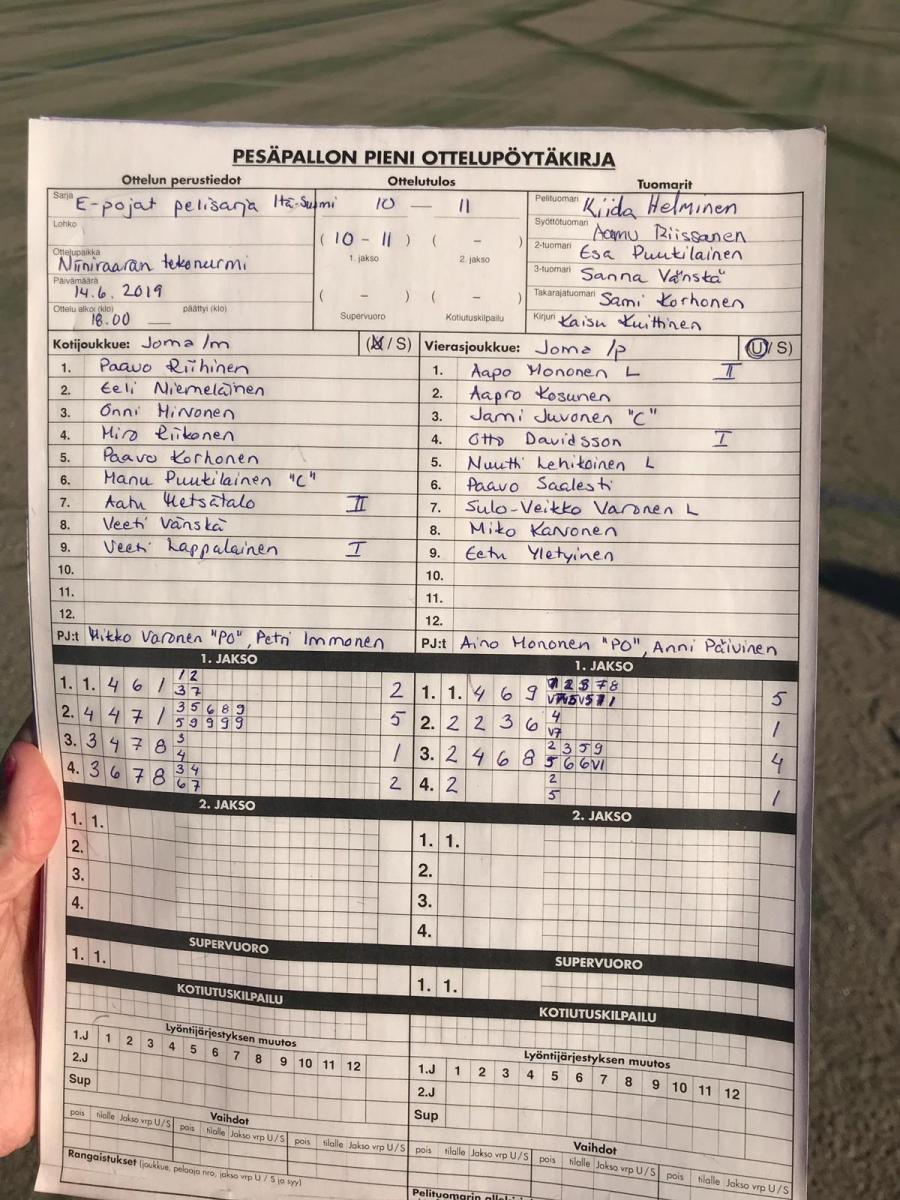 PESÄPALLON PIENI OTTELUPÖYTÄKIRJA
Ottelun perustiedot Ottelutulos Tuomarit
Sarja E-pojat pelisarja Itä-Suomi 10 — 11
Pelituomari Kiida Helminen
Lohko
( 10 - 11 ) ( - )
1. jakso 2. jakso
Syöttötuomari Aamu Riissanen
Ottelupaikka Niiniraaran tekonurmi
2-tuomari Esa Puukilainen
Päivämäärä 14.6.2019
3-tuomari Sanna Vänskä
Ottelu alkoi (klo) 18.00 — päättyi (klo)
( - ) ( - )
Supervuoro Kotiutuskilpailu
Takarajatuomari Sami Korhonen
Kirjuri Kaisu Kuittinen
Kotijoukkue: Joma /m (U / S)
1. Paavo Riihinen
2. Eeli Niemeläinen
3. Onni Hirvonen
4. Miro Riikonen
5. Paavo Korhonen
6. Manu Puukilainen "C"
7. Aatu Metsätalo II
8. Veeti Vänskä
9. Veeti Lappalainen I
10.
11.
12.
PJ:t Mikko Varonen "PO", Petri Immonen
Vierasjoukkue: Joma /p (U / S)
1. Aapo Mononen L II
2. Aapro Kosunen
3. Jami Juvonen "C"
4. Otto Davidsson I
5. Nuutti Lehikoinen L
6. Paavo Saalesti
7. Sulo-Veikko Varonen L
8. Miko Karvonen
9. Eetu Yletyinen
10.
11.
12.
PJ:t Aino Mononen "PO", Anni Päivinen
1. JAKSO
1. 1. 4 6 1 1 2 2
3 7
2. 4 4 7 1 3 5 6 8 9 5
5 9 9 9 9
3. 3 4 7 8 3 1
4
4. 3 6 7 8 3 4 2
6 7
1. JAKSO
1. 1. 4 6 9 7 8 5
2. 2 2 3 6 4 1
V7
3. 2 4 6 8 2 3 5 9 4
5 6 6 V1
4. 2 2 1
5
2. JAKSO
1. 1.
2.
3.
4.
2. JAKSO
1. 1.
2.
3.
4.
SUPERVUORO
1. 1.
SUPERVUORO
1. 1.
KOTIUTUSKILPAILU
KOTIUTUSKILPAILU
Lyöntijärjestyksen muutos
1.J 1 2 3 4 5 6 7 8 9 10 11 12
2.J
Sup
Lyöntijärjestyksen muutos
1.J 1 2 3 4 5 6 7 8 9 10 11 12
2.J
Sup
Vaihdot
pois tilalle Jakso vrp U/S pois tilalle Jakso vrp U/S pois tilalle Jakso vrp U/S
Vaihdot
pois tilalle Jakso vrp U/S pois tilalle Jakso vrp U/S pois tilalle Jakso vrp U/S
Rangaistukset (joukkue, pelaaja nro, jakso vrp U / S ja syy)